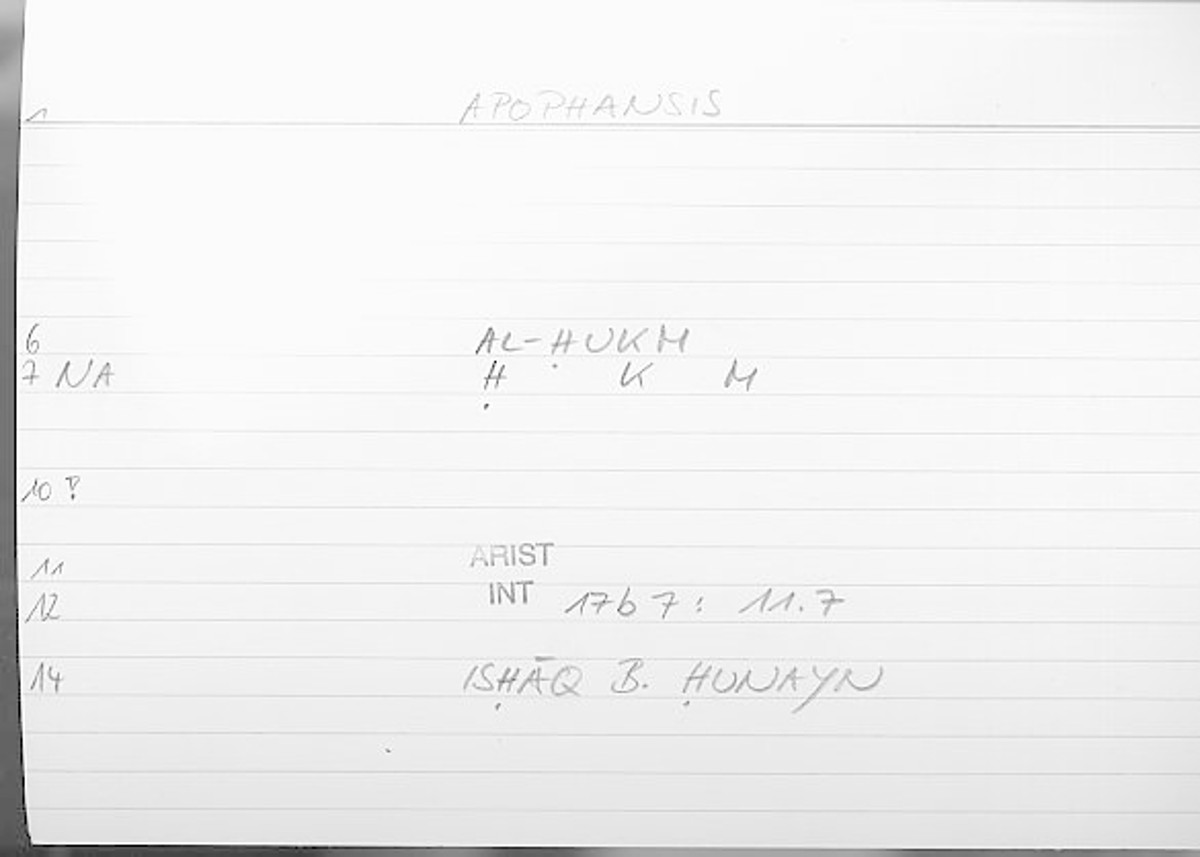 1 APOPHANSIS
6 AL-ḤUKM
7 NA Ḥ K M
10 ?
11 ARIST
12 INT 17b7: 11.7
14 ISḤĀQ B. ḤUNAYN